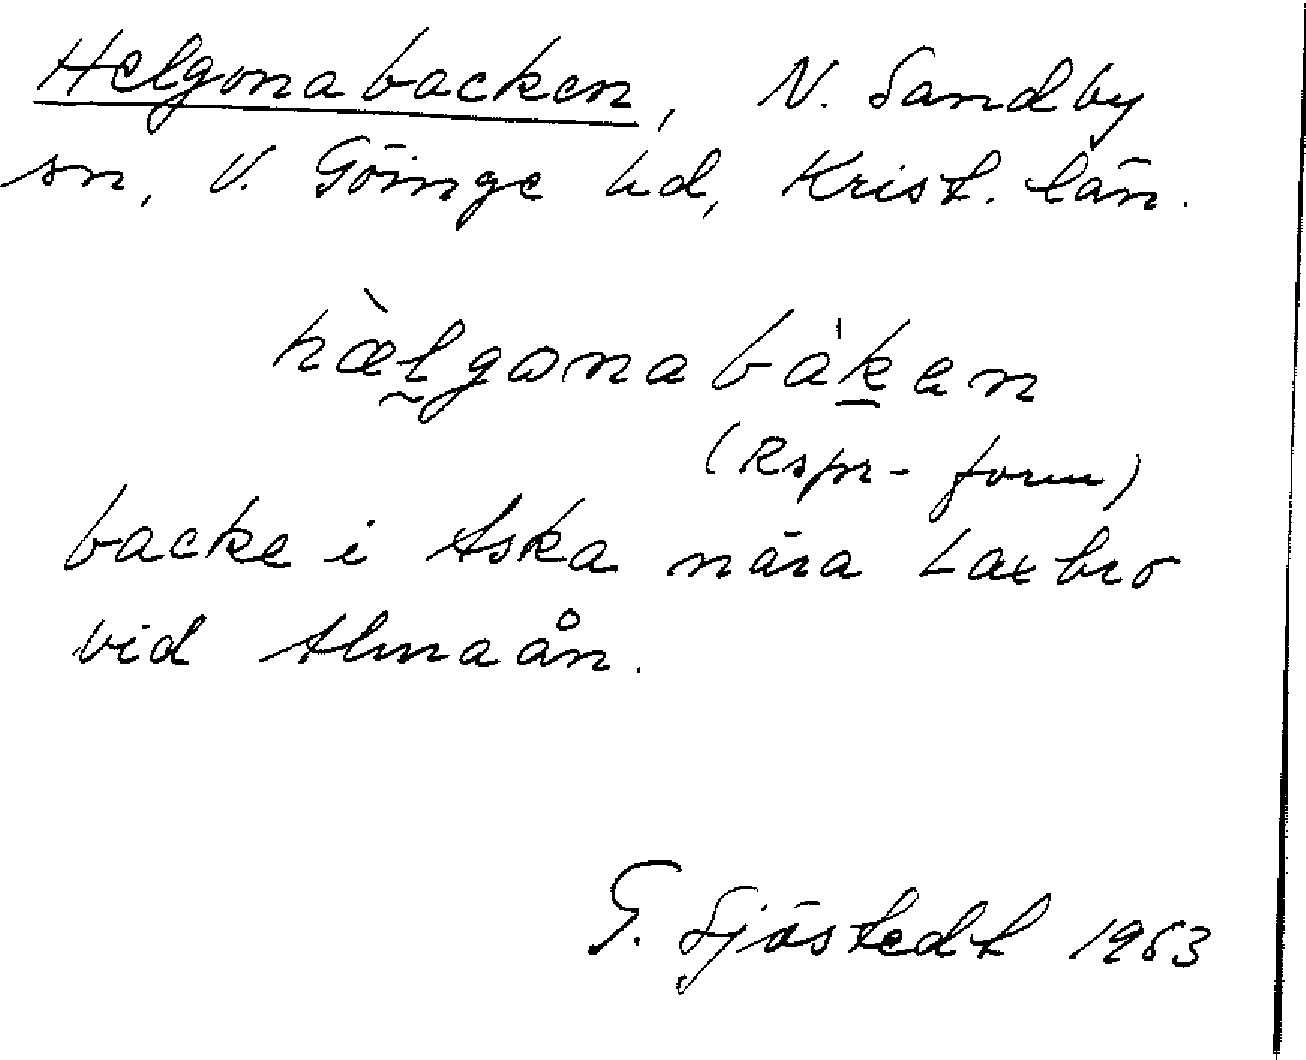 Helgonabacken, N. Sandby
sn, V. Göinge hd, Krist. län.
hæ̀lgonabakan
(Rspr-form)
backe i Aska nära Laxbro
vid Almaån.
G. Sjöstedt 1963